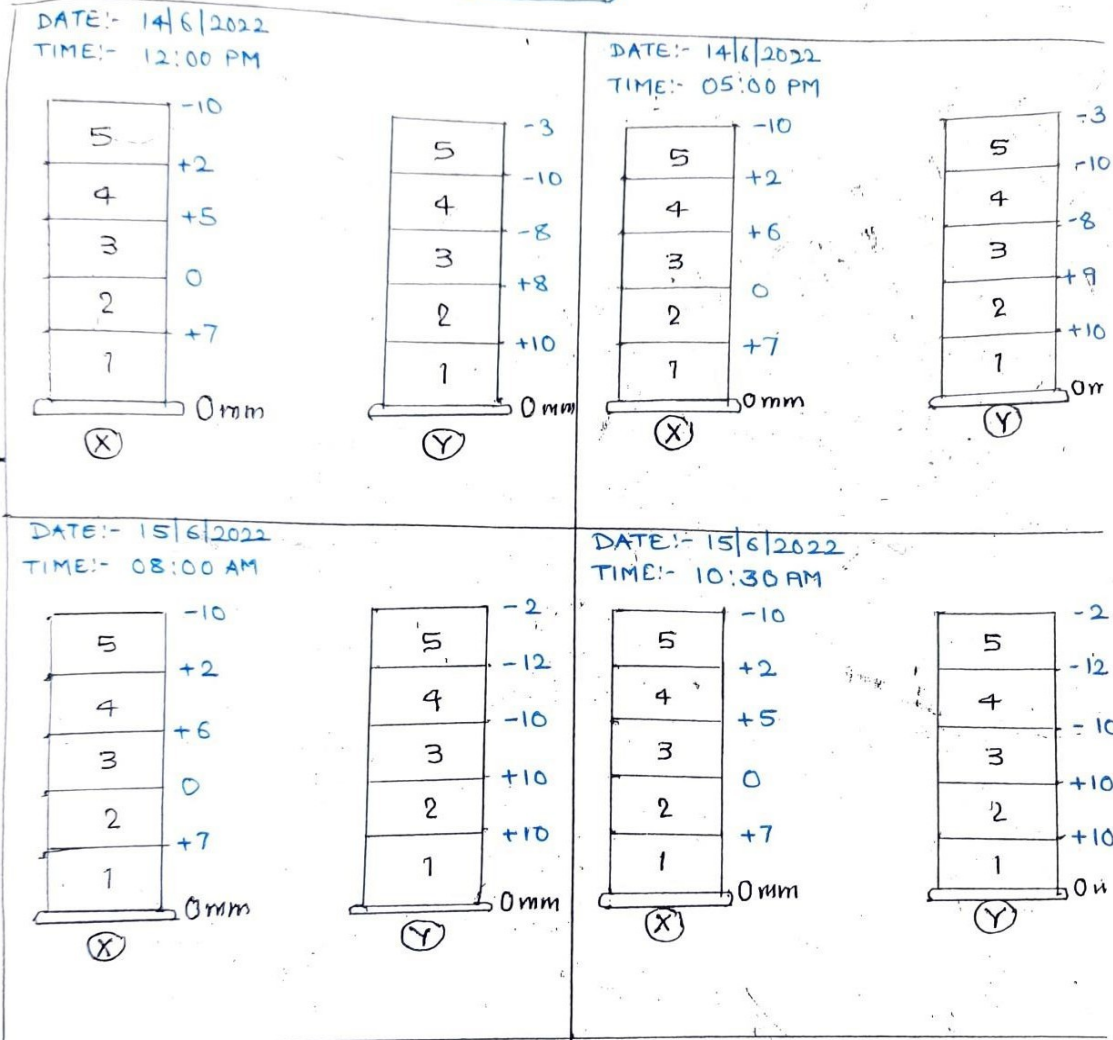 DATE:- 14/6/2022
TIME:- 12:00 PM
-10
5
+2
4
+5
3
0
2
+7
1
0mm
X
-3
5
-10
4
-8
3
+8
2
+10
1
0mm
Y
DATE:- 14/6/2022
TIME:- 05:00 PM
-10
5
+2
4
+6
3
0
2
+7
1
0mm
X
-3
5
-10
4
-8
3
+9
2
+10
1
Y
DATE:- 15/6/2022
TIME:- 08:00 AM
-10
5
+2
4
+6
3
0
2
+7
1
0mm
X
-2
5
-12
4
-10
3
+10
2
+10
1
0mm
Y
DATE:- 15/6/2022
TIME:- 10:30 AM
-10
5
+2
4
+5
3
0
2
+7
1
0mm
X
-2
5
-12
4
-10
3
+10
2
+10
1
Y